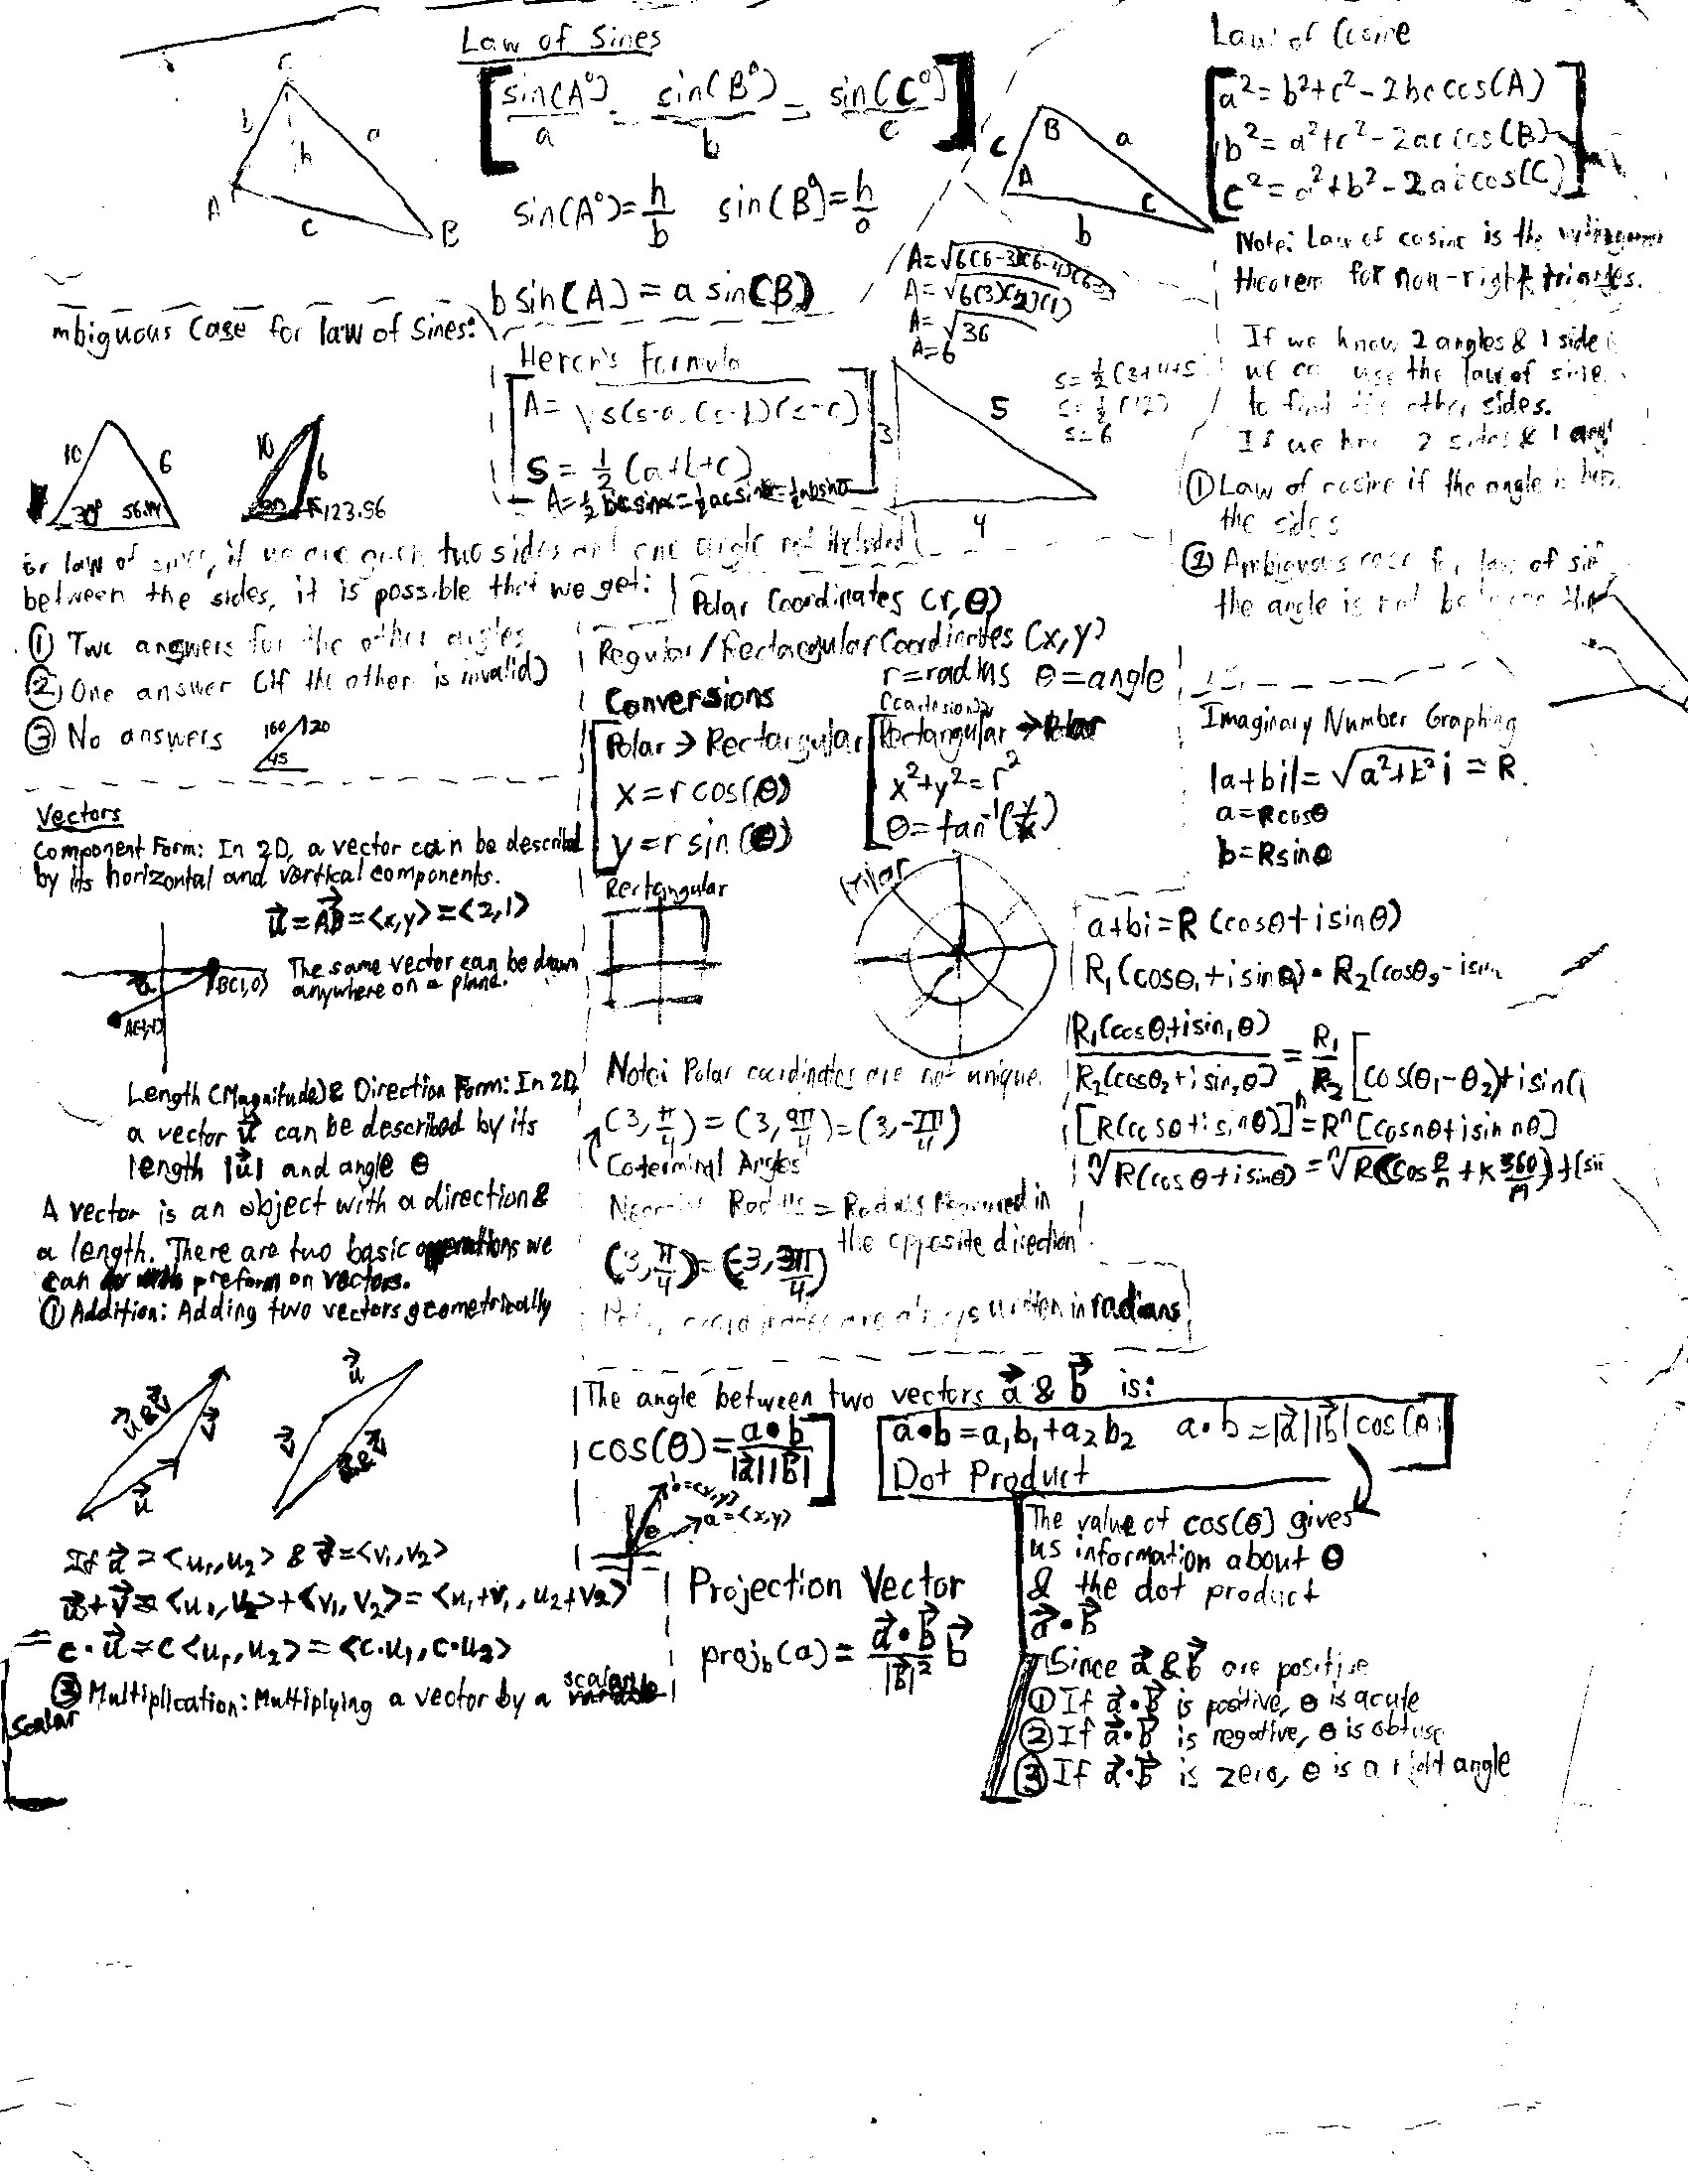 Law of Sines
sin(A°)/a = sin(B°)/b = sin(C°)/c
sin(A°)=h/b sin(B°)=h/a
b sin(A) = a sin(B)
C
b
a
h
A
c
B
Law of Cosine
a²=b²+c²-2bc cos(A)
b²=a²+c²-2ac cos(B)
c²=a²+b²-2ab cos(C)
c
B
a
A
C
b
Note: Law of cosine is the
theorem for non-right triangles.
If we know 2 angles & 1 side
we can use the law of sine
to find the other sides.
If we 2 sides & 1
① Law of cosine if the angle is
the sides
② Ambiguous case for law of
the angle is not between
mbiguous Case for law of Sines:
10
6
30°
56.44
10
6
123.56
or law of sines, if we are given two sides and one angle not included
between the sides, it is possible that we get:
① Two answers for the other angles
② One answer (if the other is invalid)
③ No answers
160
120
45
Heron's Formula
A=√s(s-a)(s-b)(s-c)
S = ½(a+b+c)
A=√6(6-3)(6-4)(6-5)
A=√6(3)(2)(1)
A=√36
A=6
3
5
4
s=½(3+4+5)
s=½(12)
s=6
Polar Coordinates (r,θ)
Regular/Rectangular Coordinates (x,y)
r=radius θ=angle
Conversions
Polar → Rectangular
x=r cos(θ)
y=r sin(θ)
(cartesian)
Rectangular → Polar
x²+y²=r²
θ=tan⁻¹(y/x)
Rectangular
Polar
Note: Polar coordinates are not unique.
(3,π/4)=(3,9π/4)=(3,-7π/4)
Coterminal Angles
Negative Radius = Radius Measured in
the opposite direction
(3,π/4)=(-3,3π/4)
coordinates are always written in radians
Imaginary Number Graphing
|a+bi|=√a²+b² i = R
a=Rcosθ
b=Rsinθ
a+bi=R(cosθ+isinθ)
R₁(cosθ₁+isinθ₁)•R₂(cosθ₂-isin
R₁(cosθ₁+isin₁θ)/R₂(cosθ₂+isin₂θ) = R₁/R₂[cos(θ₁-θ₂)+isin(
[R(cosθ+isinθ)]ⁿ=Rⁿ[cosnθ+isin nθ]
ⁿ√R(cosθ+isinθ) = ⁿ√R(cos θ/n + K 360/n)+(sin
Vectors
Component Form: In 2D, a vector can be described
by its horizontal and vertical components.
u⃗=AB⃗=<x,y>=<2,1>
The same vector can be drawn
anywhere on a plane.
B(1,0)
A(-1,-1)
Length (Magnitude) & Direction Form: In 2D
a vector u⃗ can be described by its
length |u⃗| and angle θ
A vector is an object with a direction &
a length. There are two basic operations we
can preform on vectors.
① Addition: Adding two vectors geometrically
u⃗&v⃗
v⃗
u⃗
u⃗
v⃗
If u⃗=<u₁,u₂> & v⃗=<v₁,v₂>
u⃗+v⃗=<u₁,u₂>+<v₁,v₂>=<u₁+v₁,u₂+v₂>
c·u⃗=c<u₁,u₂>=<c·u₁,c·u₂>
② Multiplication: Multiplying a vector by a scalar
Scalar
The angle between two vectors a⃗ & b⃗ is:
cos(θ)=a•b/|a⃗||b⃗|
b=<x,y>
a=<x,y>
θ
a•b=a₁b₁+a₂b₂ a•b=|a⃗||b⃗|cos(θ)
Dot Product
The value of cos(θ) gives
us information about θ
& the dot product
a⃗•b⃗
Since a⃗ & b⃗ are positive
① If a⃗•b⃗ is positive, θ is acute
② If a⃗•b⃗ is negative, θ is obtuse
③ If a⃗•b⃗ is zero, θ is a right angle
Projection Vector
proj_b(a)=a⃗•b⃗/|b⃗|² b⃗